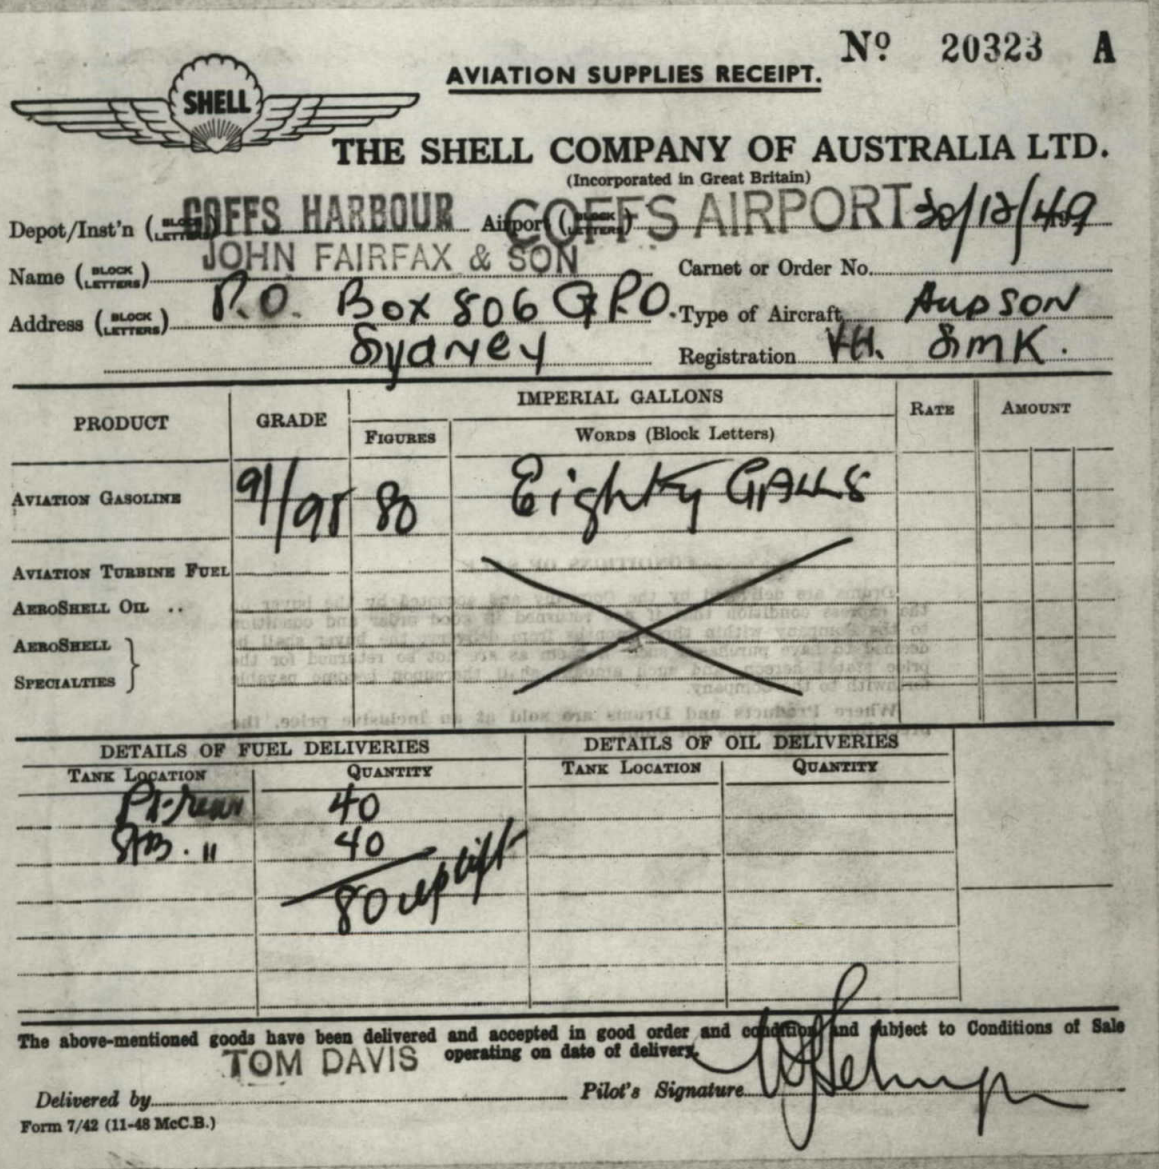 Nº 20323 A
SHELL
AVIATION SUPPLIES RECEIPT.
THE SHELL COMPANY OF AUSTRALIA LTD.
(Incorporated in Great Britain)
Depot/Inst'n (BLOCK LETTERS) COFFS HARBOUR Airport (BLOCK LETTERS) COFFS AIRPORT 30/12/49
Name (BLOCK LETTERS) JOHN FAIRFAX & SON Carnet or Order No.
Address (BLOCK LETTERS) P.O. Box 806 G.P.O. Type of Aircraft HUDSON
Sydney Registration VH. SMK.
PRODUCT GRADE IMPERIAL GALLONS RATE AMOUNT
FIGURES WORDS (Block Letters)
AVIATION GASOLINE 91/98 80 Eighty GALLS
AVIATION TURBINE FUEL
AEROSHELL OIL ..
AEROSHELL
SPECIALTIES
DETAILS OF FUEL DELIVERIES DETAILS OF OIL DELIVERIES
TANK LOCATION QUANTITY TANK LOCATION QUANTITY
40
STB. " 40
80 uplift
The above-mentioned goods have been delivered and accepted in good order and condition and subject to Conditions of Sale
operating on date of delivery.
TOM DAVIS
Delivered by Pilot's Signature
Form 7/42 (11-48 McC.B.)